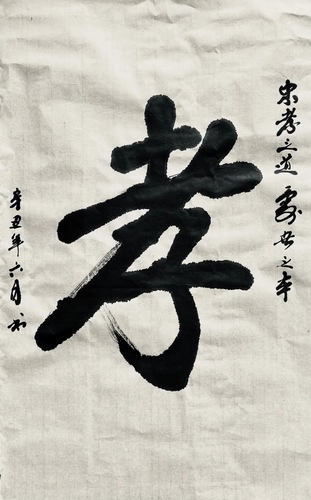 忠孝之道处世之本
孝
辛丑年六月书